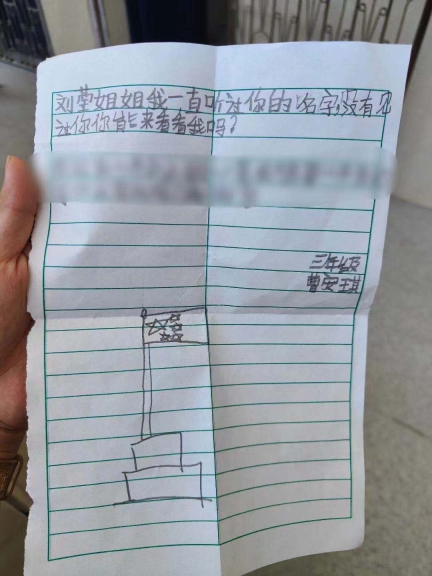 刘莹姐姐我一直听过你的名字,没有见
过你你能来看看我吗?
三年级
曹安琪